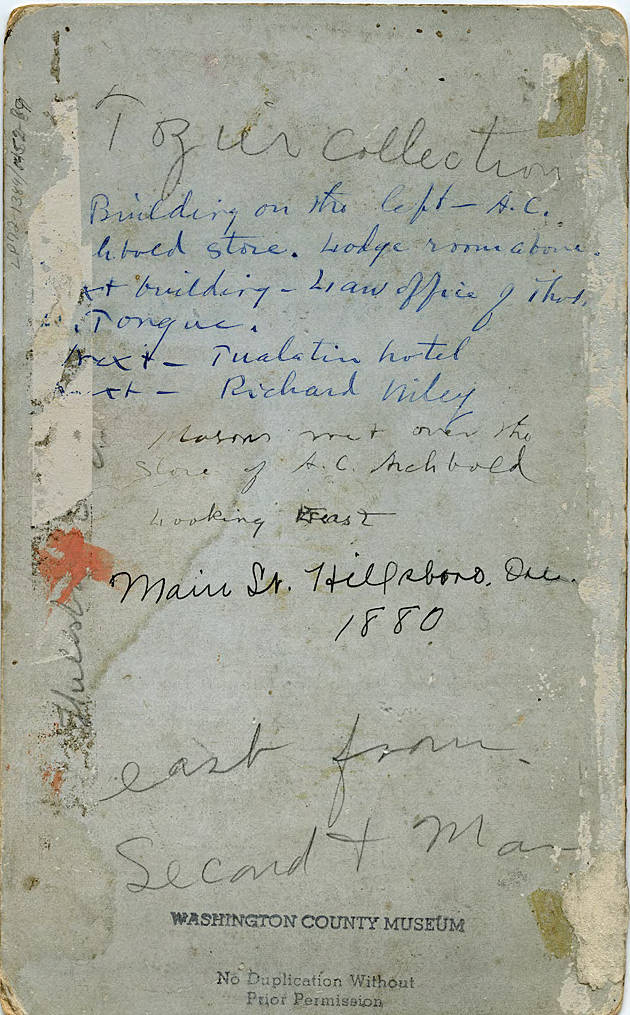 Tozier Collection
Building on the left - A.C.
hbold store. Lodge room above.
xt building - Law office of Thos.
H. Tongue.
Next - Tualatin hotel
xt - Richard Wiley
Masons met over the
store of A.C. Archbold
Looking East
Main St. Hillsboro. Ore.
1880
east from
Second + Ma
WASHINGTON COUNTY MUSEUM
No Duplication Without
Prior Permission